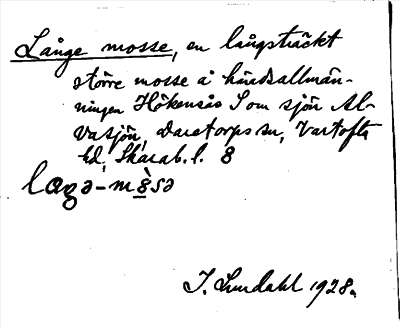 Långe mosse, en långsträckt
större mosse å häradsallmän-
ningen Hökensås S om sjön Al-
vasjön, Daretorps sn, Vartofta
hd, Skarab. l. 8
laŋə-mòsə
J. Lundahl 1928.